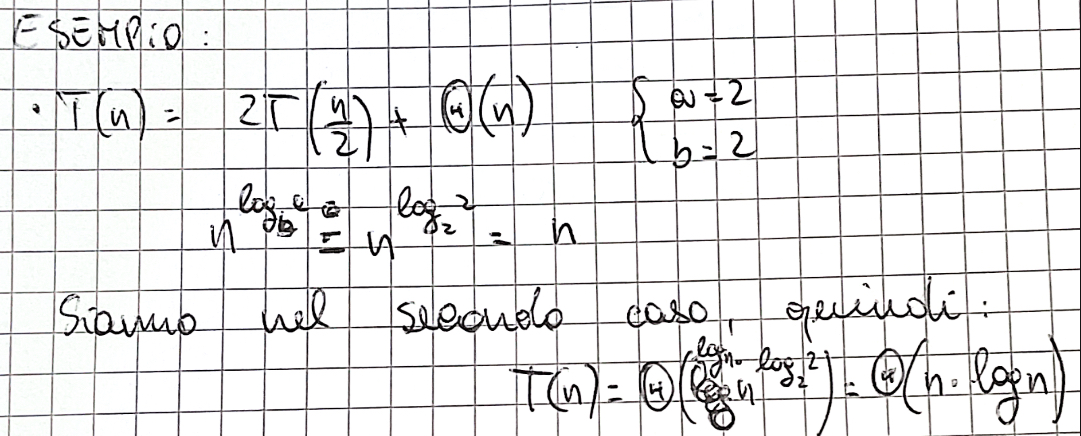 ESEMPIO:
• T(n) = 2T(n/2) + Θ(n) { a=2 b=2
n^(log_b a) = n^(log_2 2) = n
Siamo nel secondo caso, quindi:
T(n) = Θ(log n · n^(log_2 2)) = Θ(n · log n)